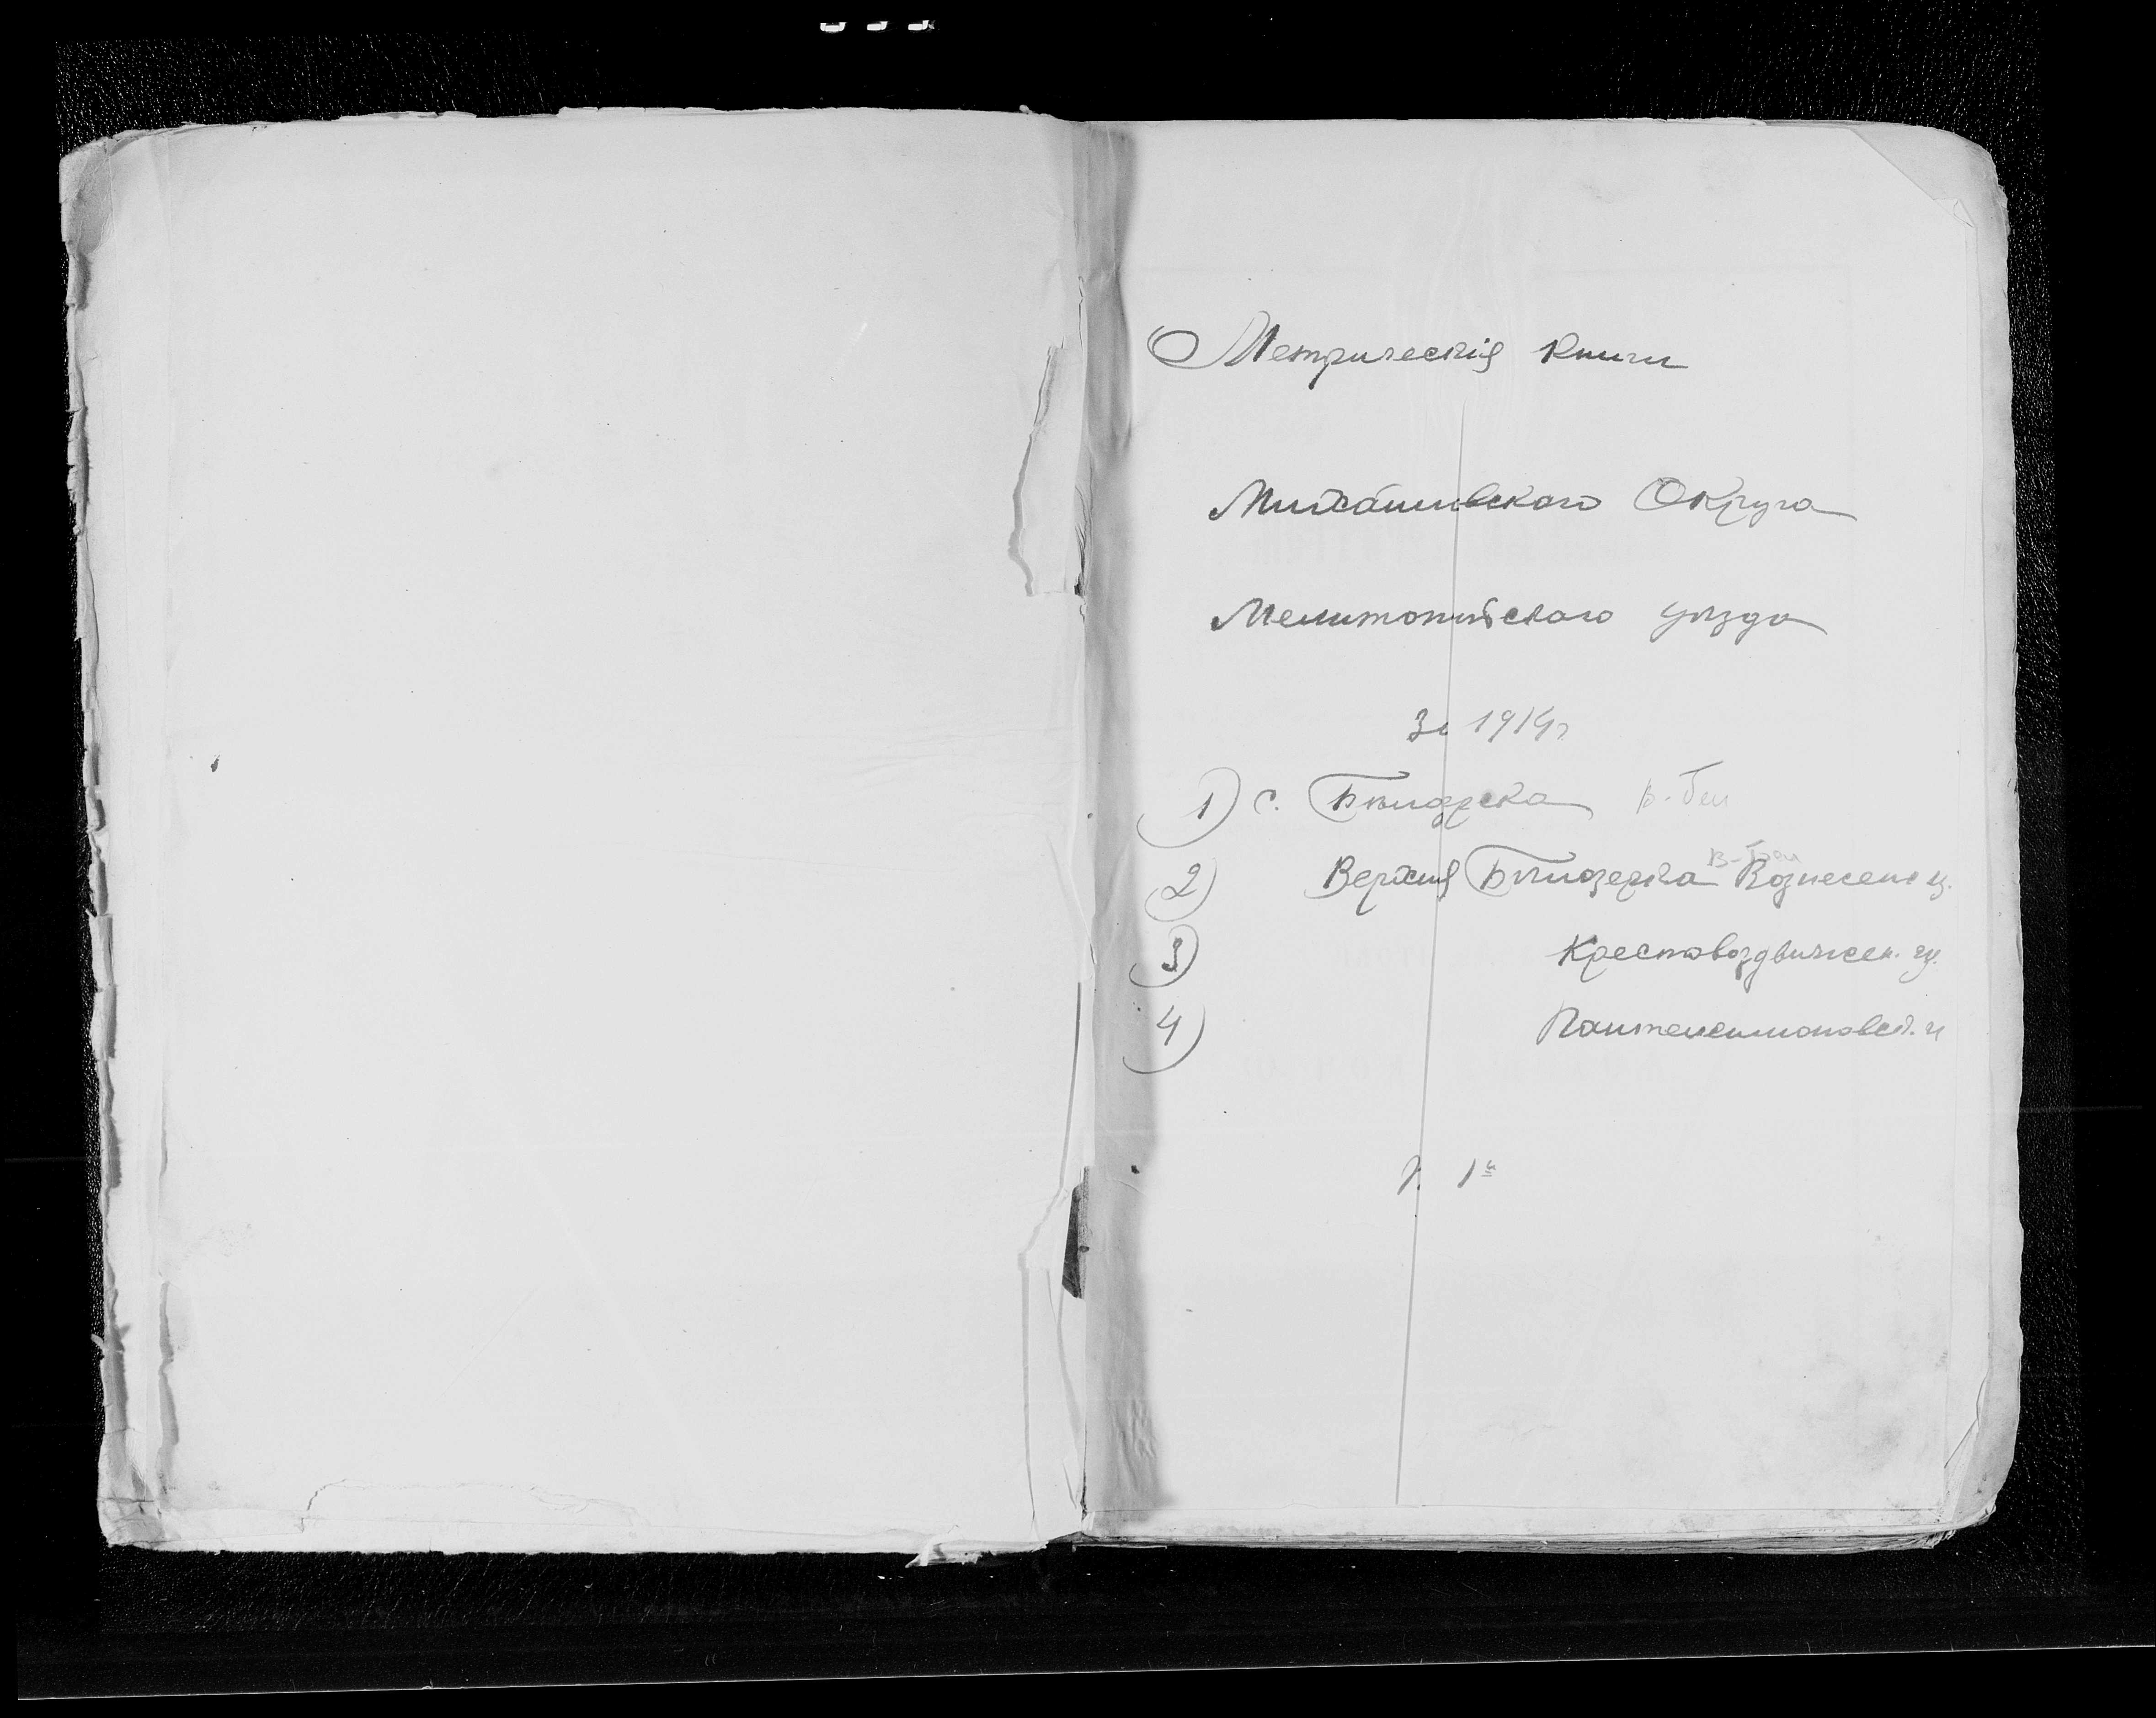 Метрическія книги
Михайловскаго Округа
Мелитопольскаго уѣзда
За 1914г
1) с. Бѣлозерка В-Бел
2) Верхняя Бѣлозерка Вознесенс ц.
3) Крестовоздвижен. ц.
4) Пантелеимоновск. ц
1й